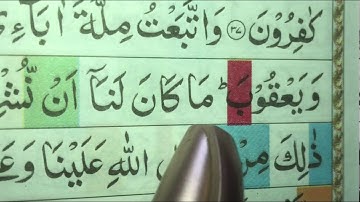 كٰفِرُوْنَ ﴿۳۷﴾ وَاتَّبَعْتُ مِلَّةَ اٰبَآءِ
وَيَعْقُوْبَ ؕ مَا كَانَ لَنَآ اَنْ نُّشْرِ
ذٰلِكَ مِنْ اللّٰهِ عَلَيْنَا وَعَ